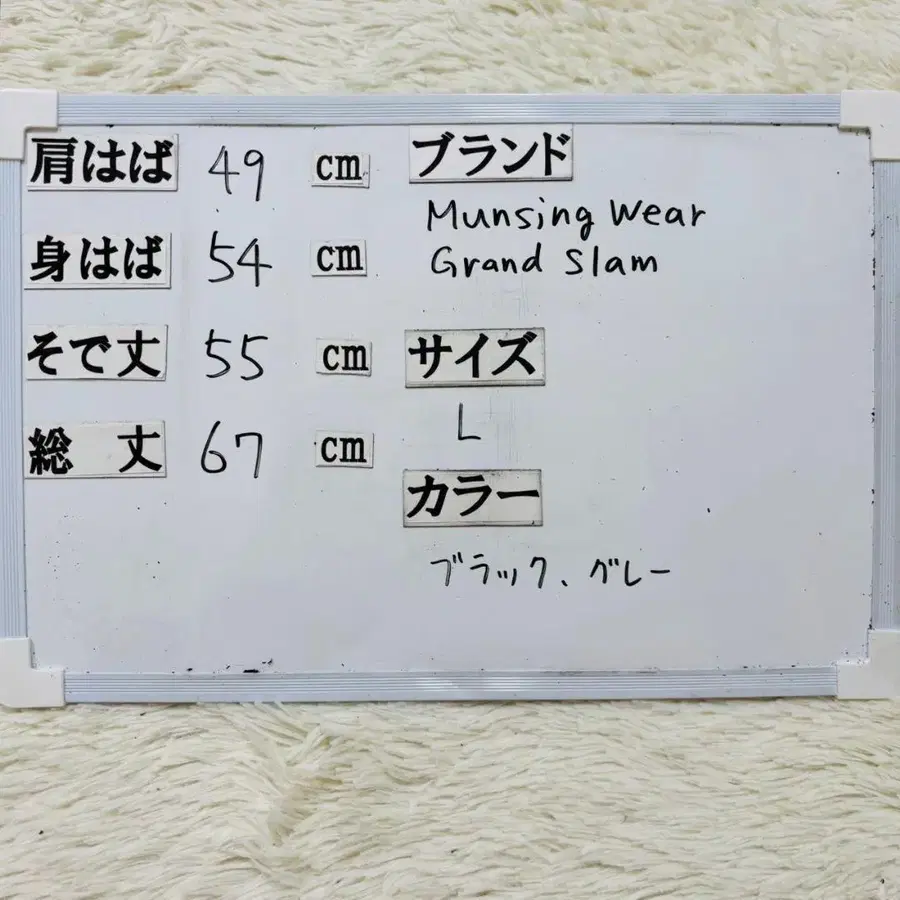 肩はば 49 cm
身はば 54 cm
そで丈 55 cm
総 丈 67 cm
ブランド
Munsing Wear
Grand Slam
サイズ
L
カラー
ブラック、グレー